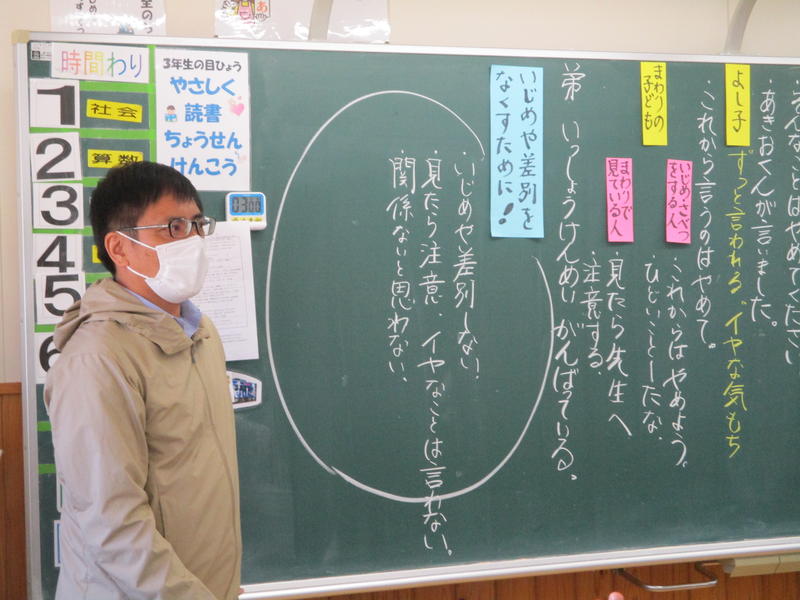 そんなことはやめてください
・あきおくんが言いました。
・これから言うのはやめて。
よし子
ずっと言われる、イヤな気もち
まわりの
子ども
いじめ・さべつ
をする人
・これからはやめよう。
ひどいことしたな、
まわりで
見ている人
・見たら先生へ
・注意する。
弟 いっしょうけんめい がんばっている。
いじめや差別を
なくすために!
・いじめや差別しない。
・見たら注意、イヤなことは言わない。
・関係ないと思わない、
時間わり
1 社会
2 算数
3
4
5
6
3年生の目ひょう
やさしく
読書
ちょうせん
けんこう
0300